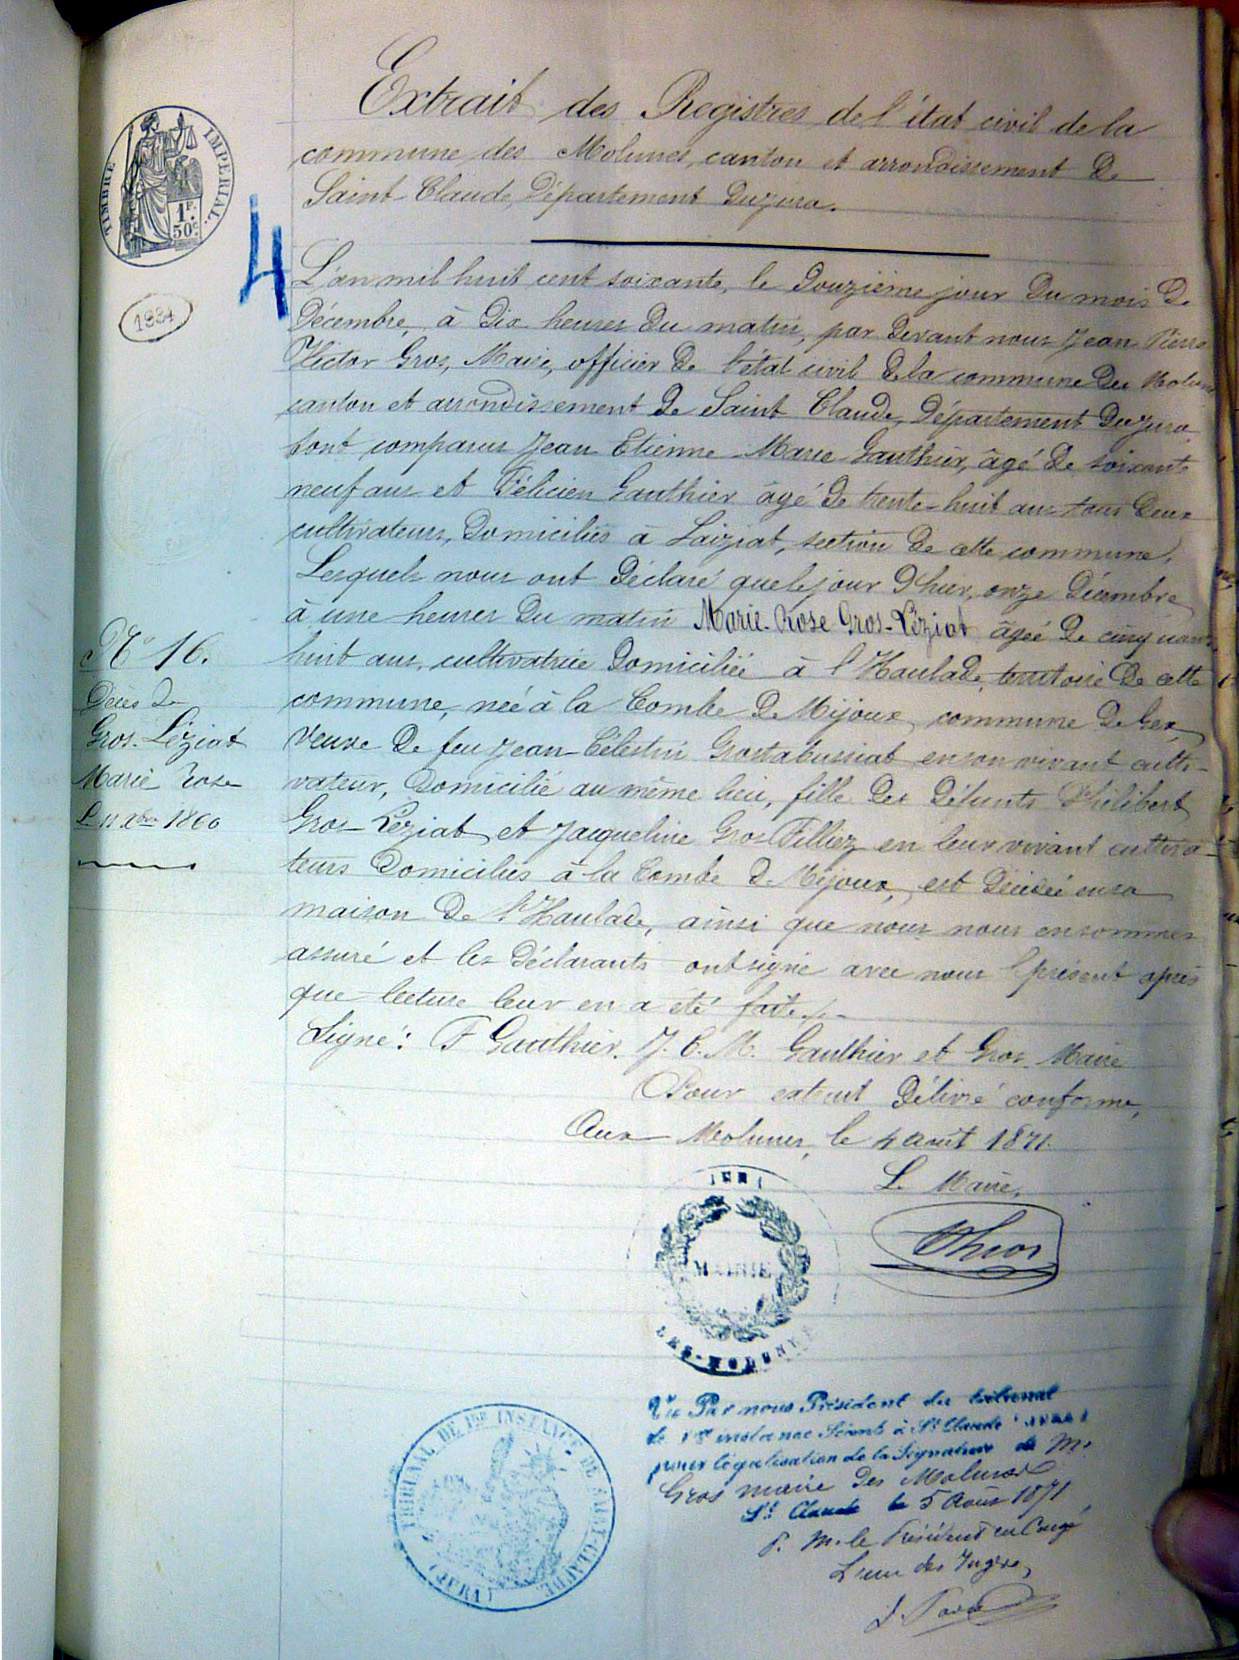 Extrait des Registres de l'état civil de la
commune des Molunes, canton et arrondissement de
Saint-Claude, Département du Jura.
TIMBRE IMPERIAL.
1F. 50c
1334
4
L'an mil huit cent soixante, le douzième jour du mois de
Décembre, à dix heures du matin, par devant nous Jean Pierre
Victor Gros, Maire, officier de l'état civil de la commune des Molunes
canton et arrondissement de Saint Claude, Département du Jura,
sont comparus Jean Etienne Marie Gauthier, âgé de soixante
neuf ans et Félicien Gauthier âgé de trente-huit ans tous deux
cultivateurs, domiciliés à Laiziat, section de cette commune,
Lesquels nous ont déclaré que le jour d'hier, onze Décembre
à une heures du matin Marie-Rose Gros-Léziat âgée de cinquante
huit ans, cultivatrice domiciliée à l'Haulade, territoire de cette
commune, née à la Combe de Mijoux, commune de Gex,
veuve de feu Jean-Célestin Grostabussiat en son vivant culti-
vateur, domicilié au même lieu, fille des défunts Philibert
Gros-Léziat et Jacqueline Gros Filliez en leur vivant cultiva-
teurs domiciliés à la Combe de Mijoux, est décédée en sa
maison de l'Haulade, ainsi que nous nous en sommes
assuré et les déclarants ont signé avec nous le présent après
que lecture leur en a été faite./.
Signé: F Gauthier. J. E. M. Gauthier et Gros Maire
Pour extrait délivré conforme,
Aux Molunes, le 4 août 1871.
Le Maire,
N° 16.
Décès de
Gros-Léziat
Marie Rose
Le 11 Xbre 1860
MAIRIE
LES-MOLUNES
Vu Par nous Président du tribunal
de 1re instance Séant à St Claude (JURA)
pour légalisation de la Signature de Mr
Gros maire des Molunes
St Claude le 5 Août 1871
P. Mr le Président en Congé
L'un des Juges,
TRIBUNAL DE 1RE INSTANCE DE SAINT-CLAUDE
(JURA)